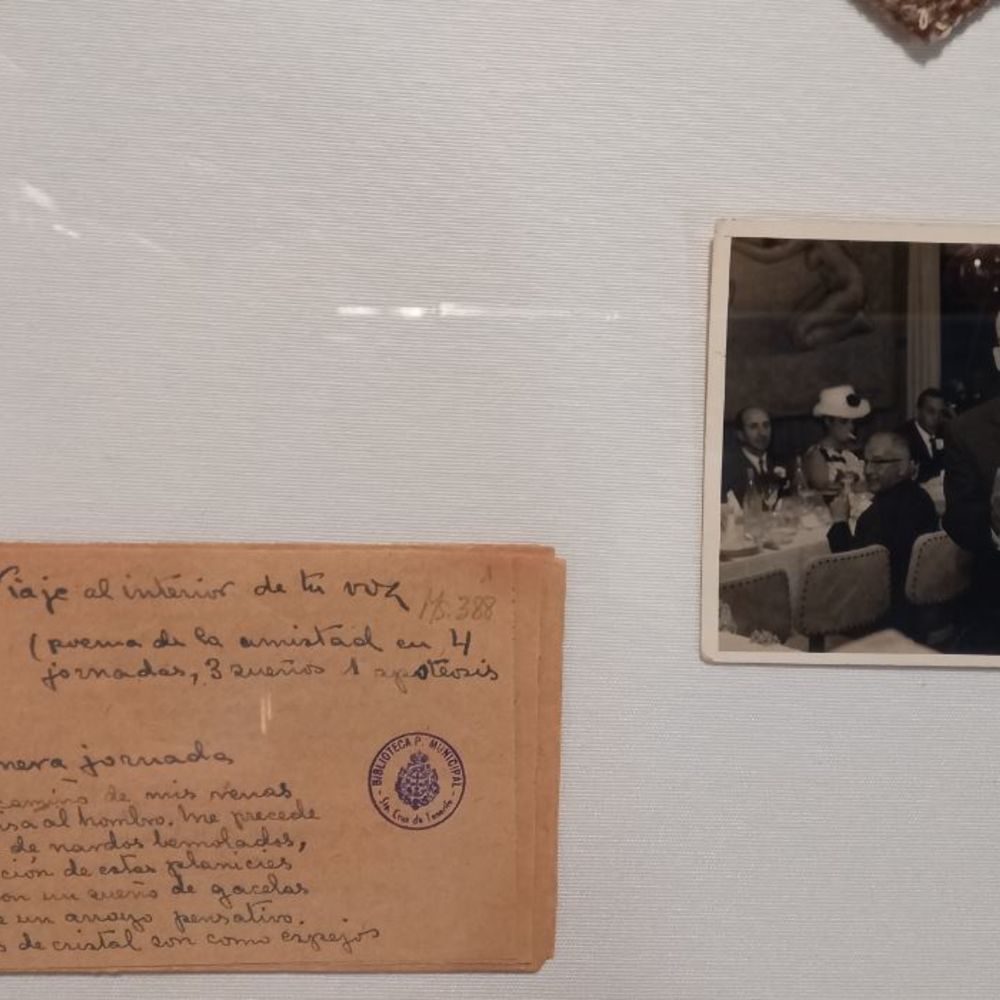 Viaje al interior de tu voz
Ms. 388
(poema de la amistad en 4
jornadas, 3 sueños 1 apoteosis
mera jornada
camino de mis venas
isa al hombro. Me precede
de nardos bemolados,
ción de estas planicies
on un sueño de gacelas
e un arroyo pensativo.
s de cristal son como espejos
BIBLIOTECA P. MUNICIPAL
- Sta. Cruz de Tenerife -